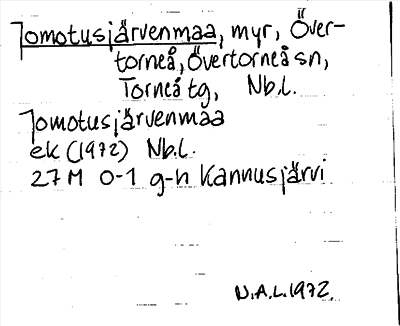 Jomotusjärvenmaa, myr, Över-
torneå, Övertorneå sn,
Torneå tg, Nb.l.
Jomotusjärvenmaa
ek (1972) Nb.l.
27 M 0-1 g-h Kannusjärvi
N.A.L. 1972.